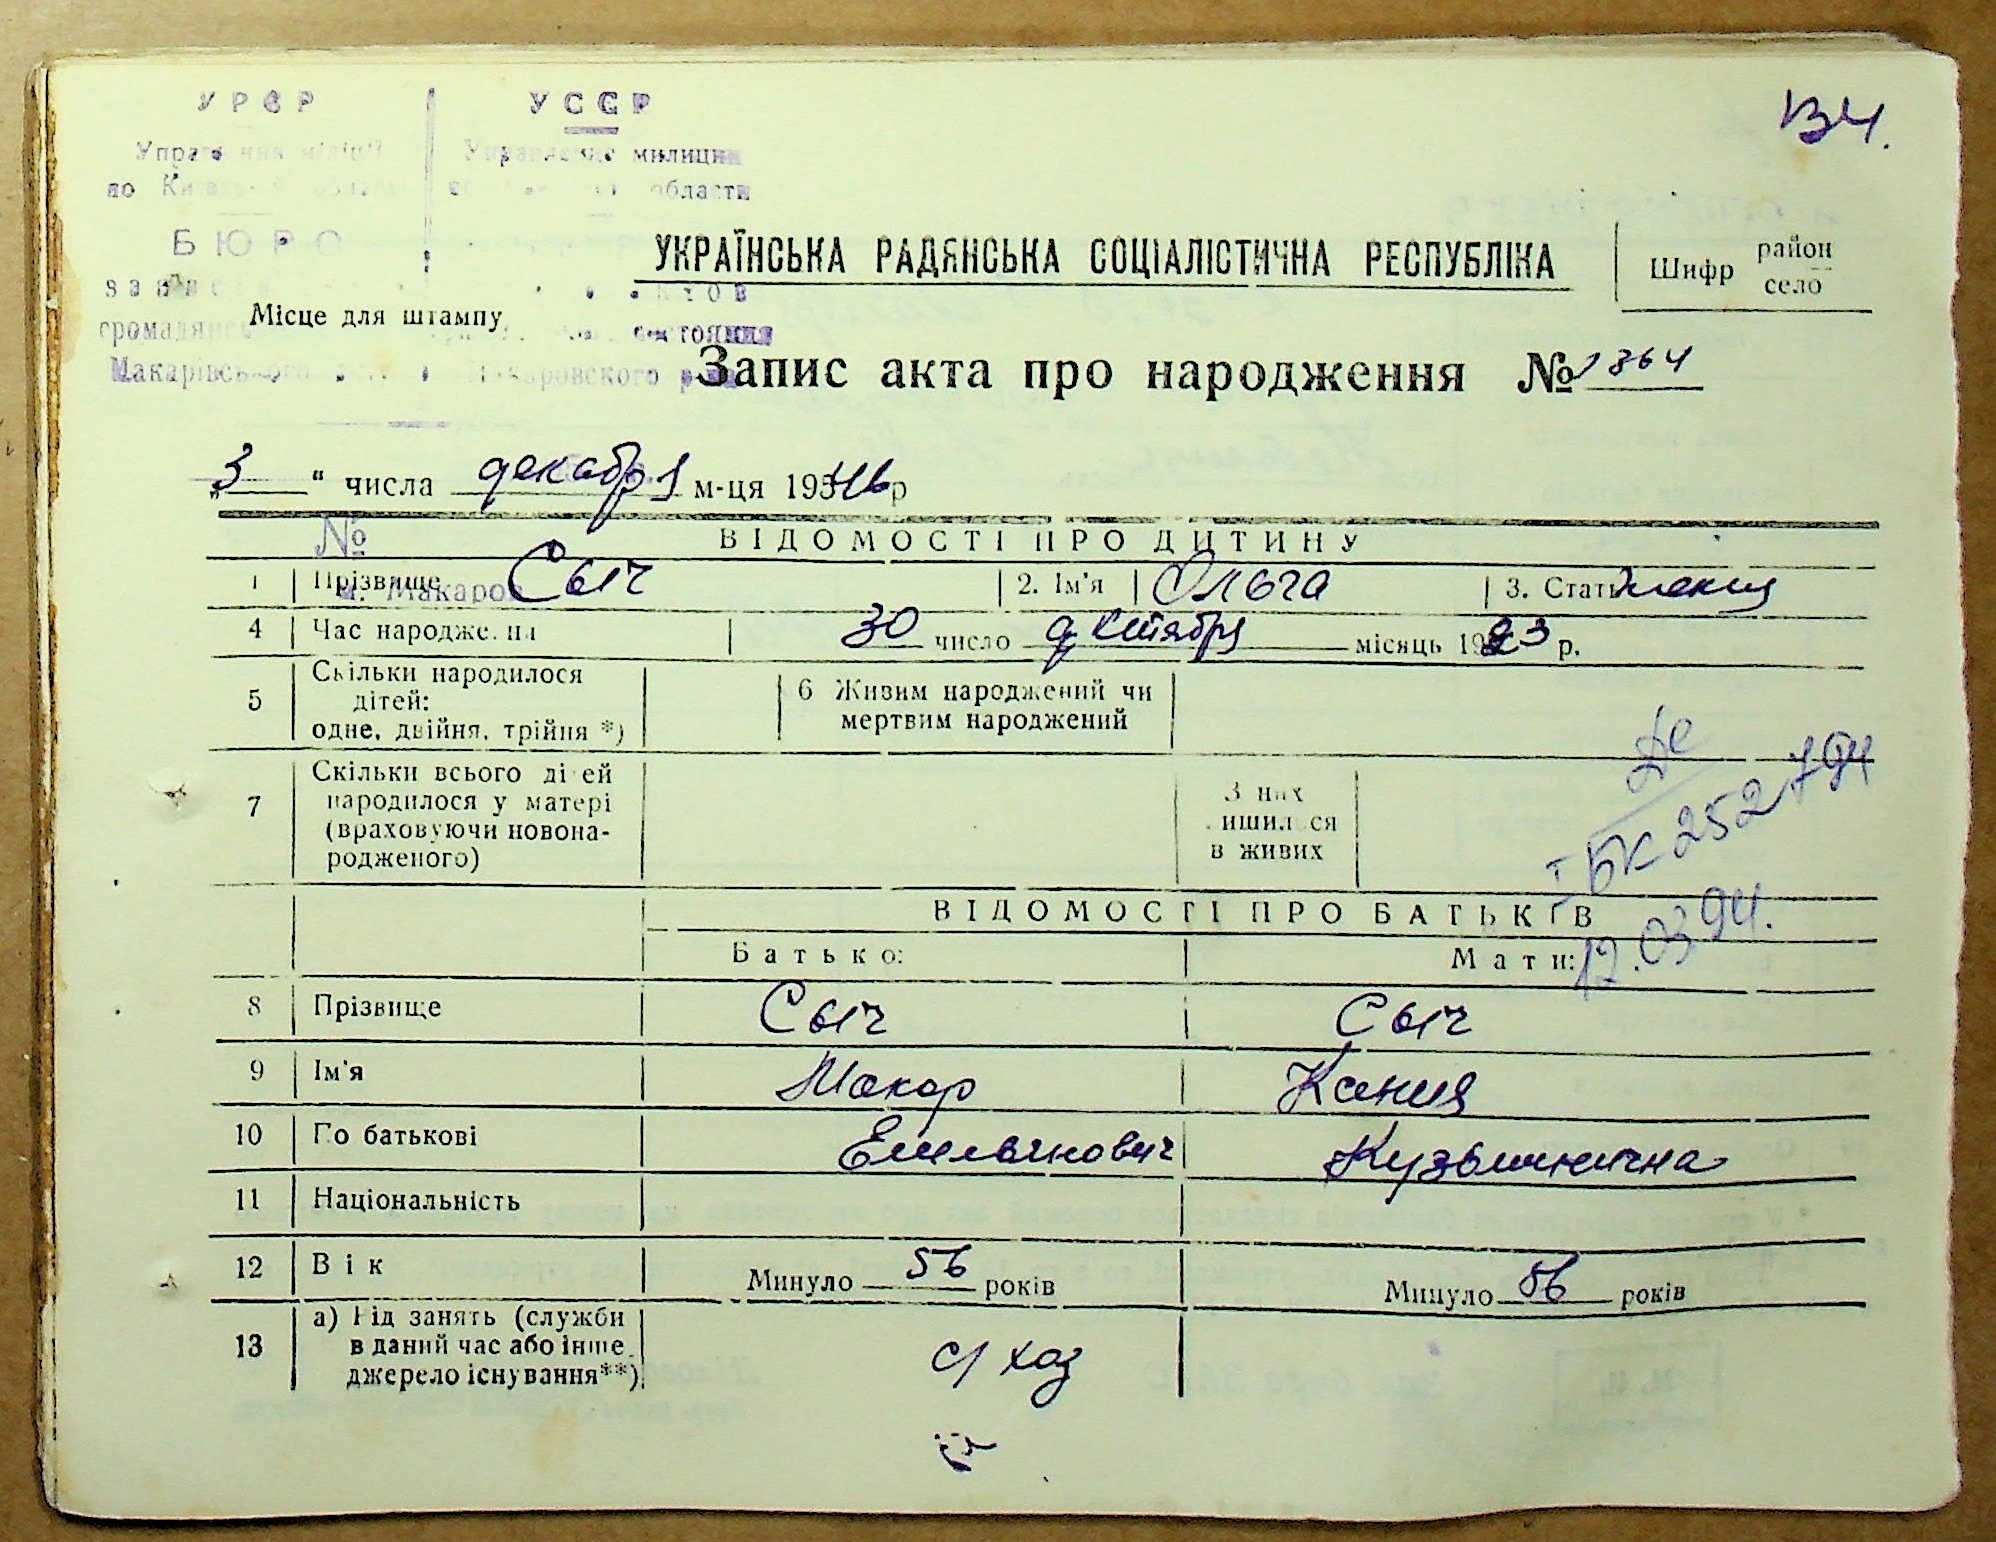 134.
УРСР УССР
милиции
по области
БЮРО
УКРАЇНСЬКА РАДЯНСЬКА СОЦІАЛІСТИЧНА РЕСПУБЛІКА
Шифр район
село
Місце для штампу
Макарівського Макаровского
Запис акта про народження № 1364
„3“ числа декабря м-ця 195 46 р
№
ВІДОМОСТІ ПРО ДИТИНУ
1 Прізвище Сыч 2. Ім'я Ольга 3. Стать женщ
м. Макаров
4 Час народження 30 число октября місяць 1923 р.
5 Скільки народилося
дітей:
одне, двійня, трійня *)
6 Живим народжений чи
мертвим народжений
7 Скільки всього дітей
народилося у матері
(враховуючи новона-
родженого)
З них
лишилося
в живих
І БК 252794
12.03.94.
ВІДОМОСТІ ПРО БАТЬКІВ
Батько: Мати:
8 Прізвище Сыч Сыч
9 Ім'я Макар Ксения
10 По батькові Емельянович Кузьминична
11 Національність
12 Вік Минуло 56 років Минуло 56 років
13 а) Рід занять (служби
в даний час або інше
джерело існування**)
с/хоз